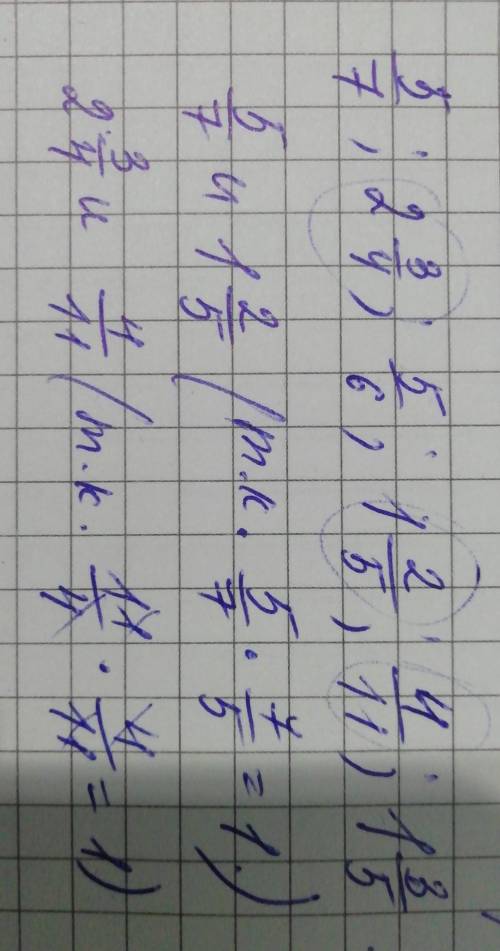 5/7; 2 3/4; 5/6; 1 2/5; 4/11; 1 3/5
5/7 и 1 2/5 (т.к. 5/7 · 7/5 = 1)
2 3/4 и 4/11 (т.к. 11/4 · 4/11 = 1)